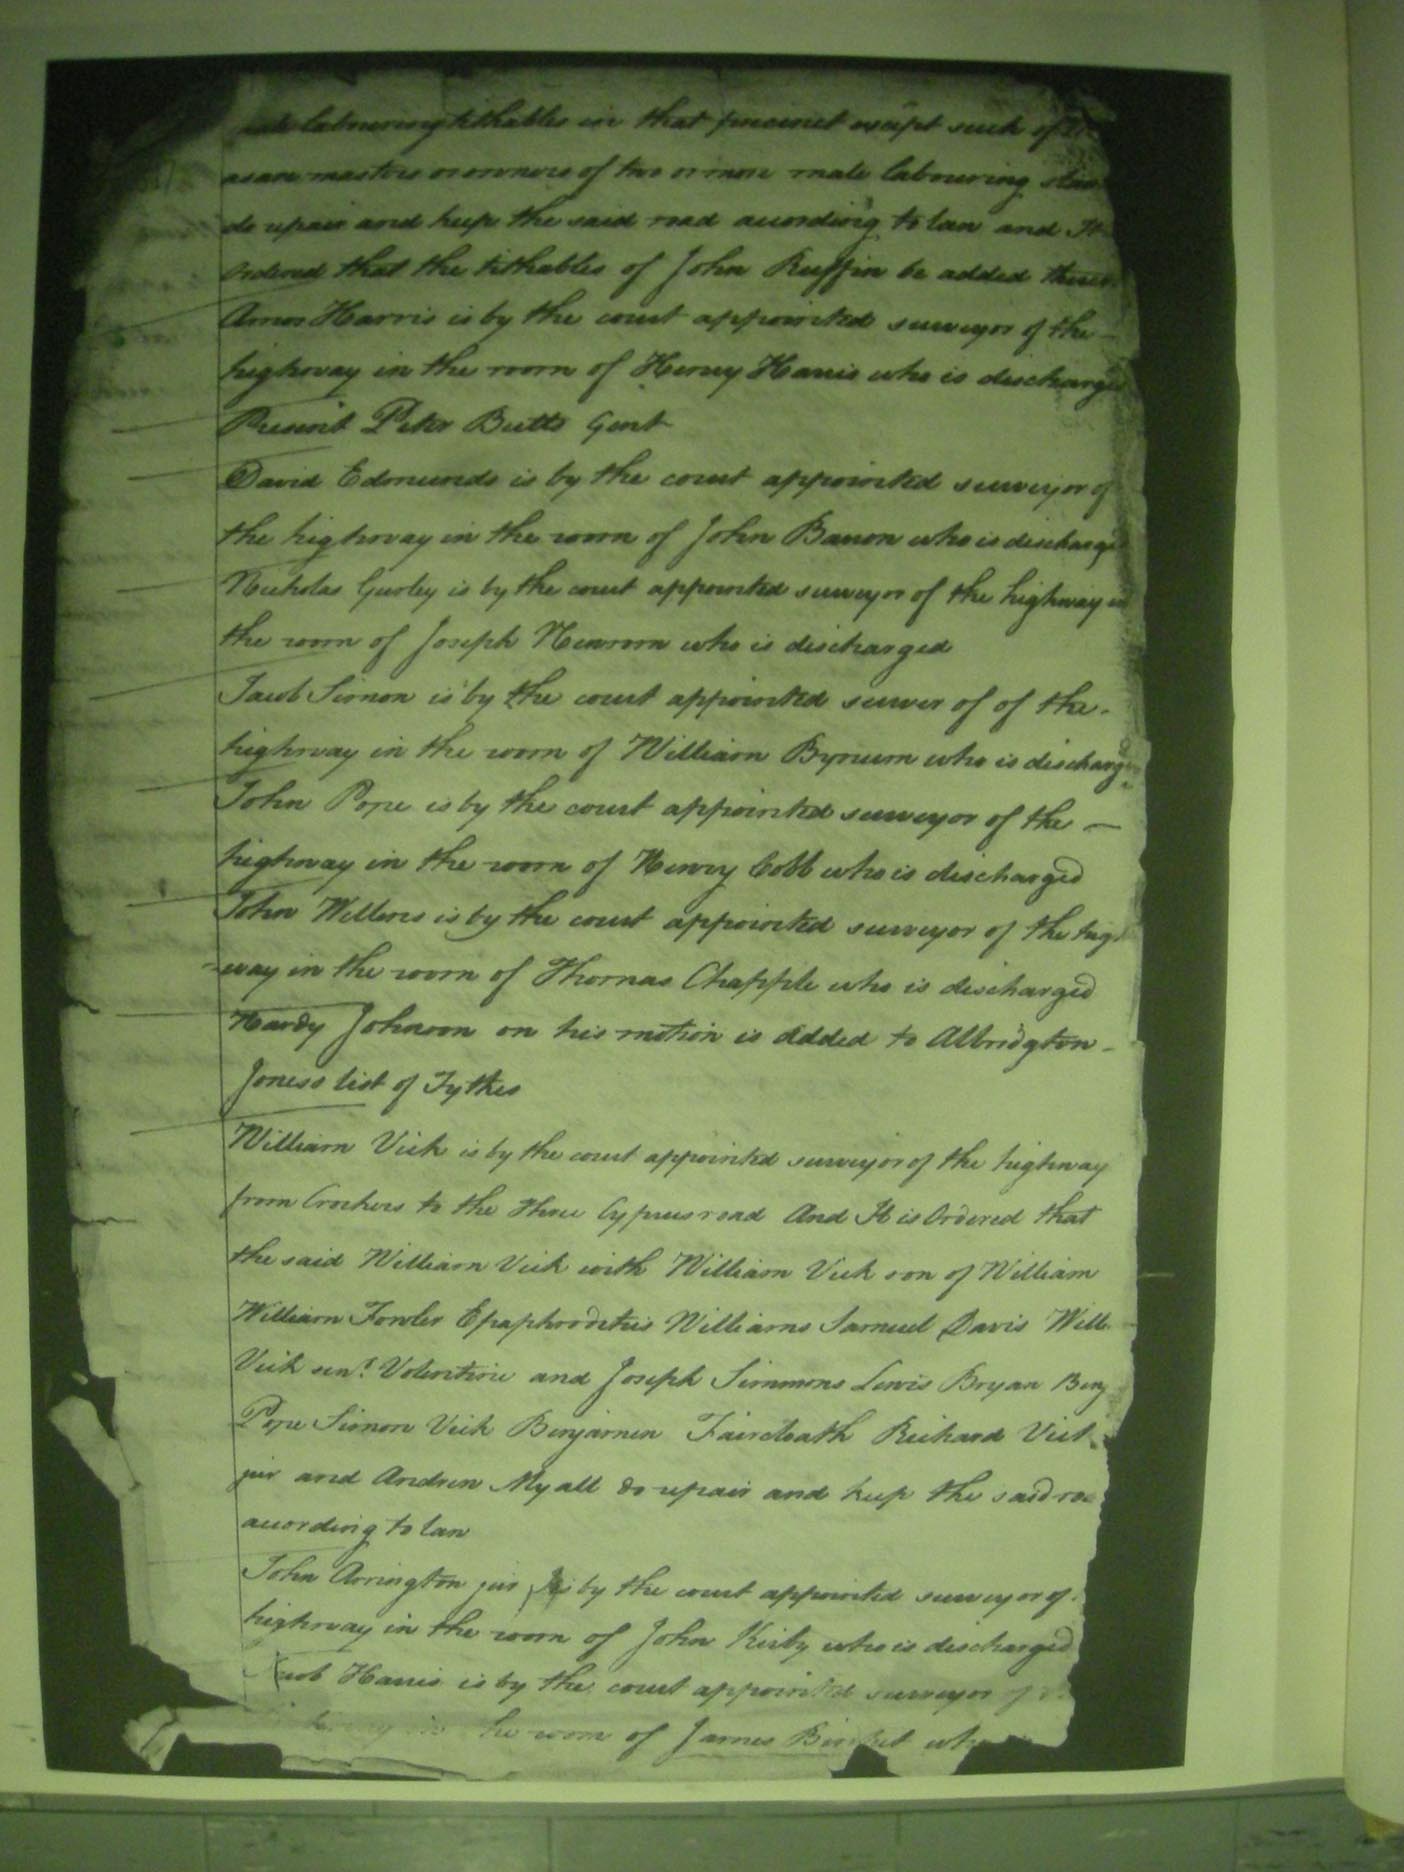 labouring tithables in that precinct except such of
as are masters or owners of two or more male labouring
do repair and keep the said road according to law and It
Ordered that the tithables of John Ruffin be added
Amos Harris is by the court appointed surveyor of the –
highway in the room of Henry Harris who is discharged
Present Peter Butts Gent
David Edmunds is by the court appointed surveyor of
the highway in the room of John Barron who is discharged
Nicholas Gurley is by the court appointed surveyor of the highway in
the room of Joseph Newsom who is discharged
Jacob Simon is by the court appointed surver of of the –
highway in the room of William Bynum who is discharged
John Pope is by the court appointed surveyor of the —
highway in the room of Henry Cobb who is discharged
John is by the court appointed surveyor of the high
=way in the room of Thomas Chapple who is discharged
Hardy Johnson on his motion is added to Albridgton –
Joness list of Tythes
William Vick is by the court appointed surveyor of the highway
from Crockers to the three Cyprus road And It is Ordered that
the said William Vick with William Vick son of William
William Fowler Epaphroditus Williams Samuel Davis Will
Vick senr. Volentine and Joseph Simmons Lewis Bryan Benj
Pope Simon Vick Benjamen Faircloath Richard Vick
jur and Andrew Myall do repair and keep the said
according to law
John Arrington jur is by the court appointed surveyor of
highway in the room of John Kirby who is discharged
Jacob Harris is by the court appointed surveyor of
in the room of James who